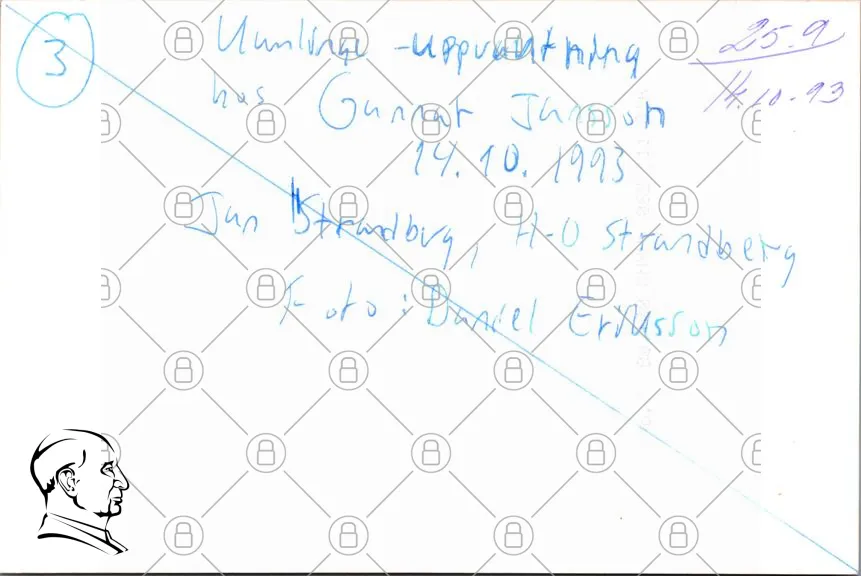 3
-uppvaktning
hos Gunnar Jansson
14.10.1993
Jan Strandberg, H-O Strandberg
Foto: Daniel Eriksson
25.9
14.10-93